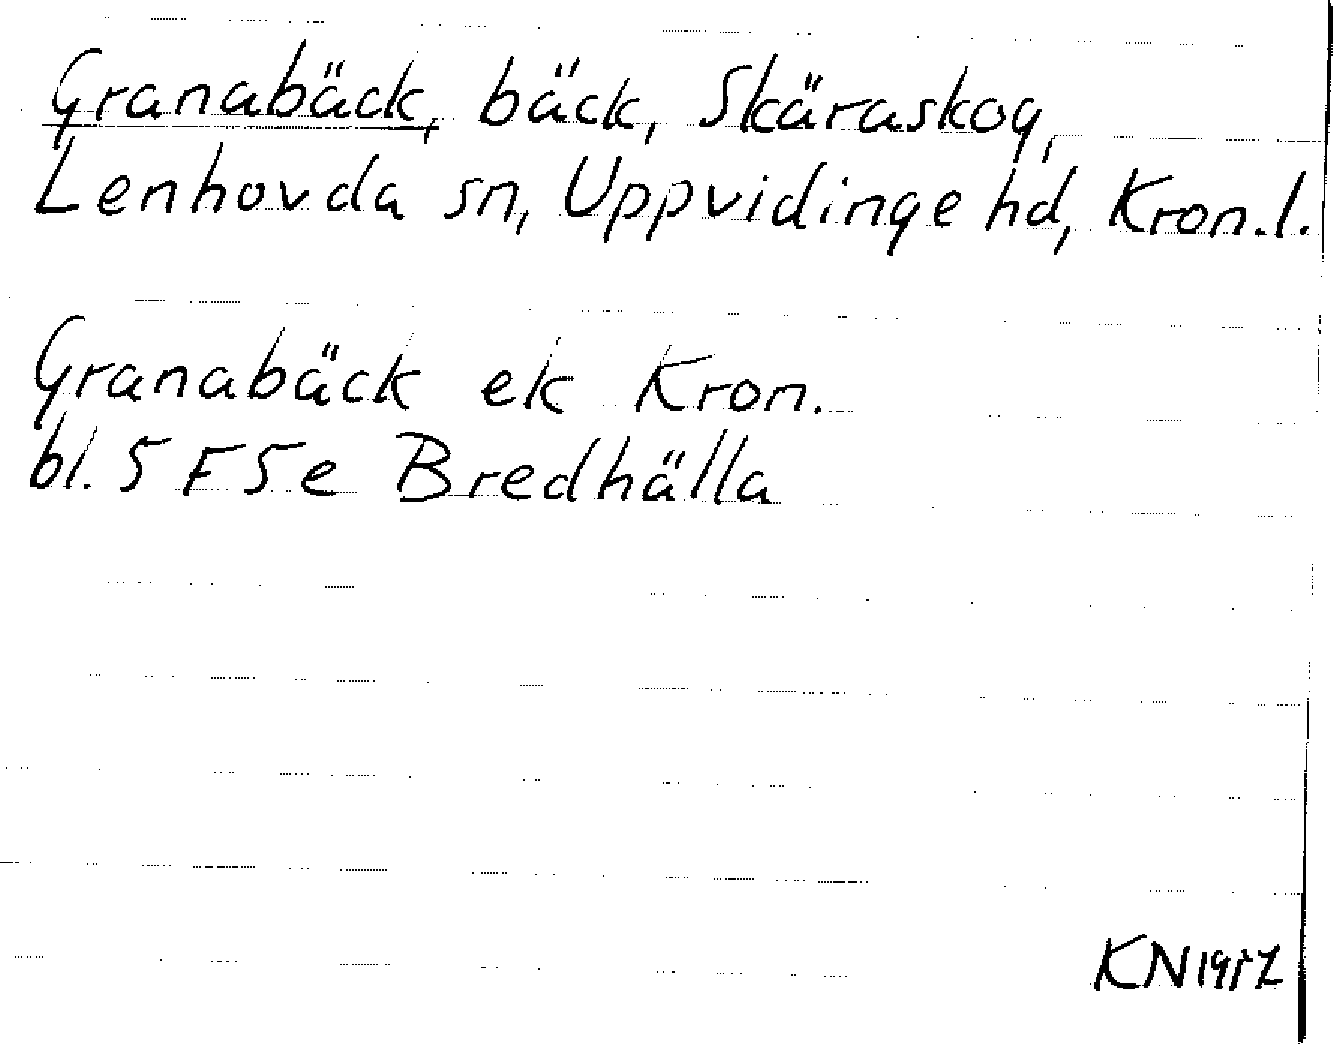 Granabäck, bäck, Skäraskog,
Lenhovda sn, Uppvidinge hd, Kron.l.
Granabäck ek Kron.
bl. 5 F 5 e Bredhälla
KN